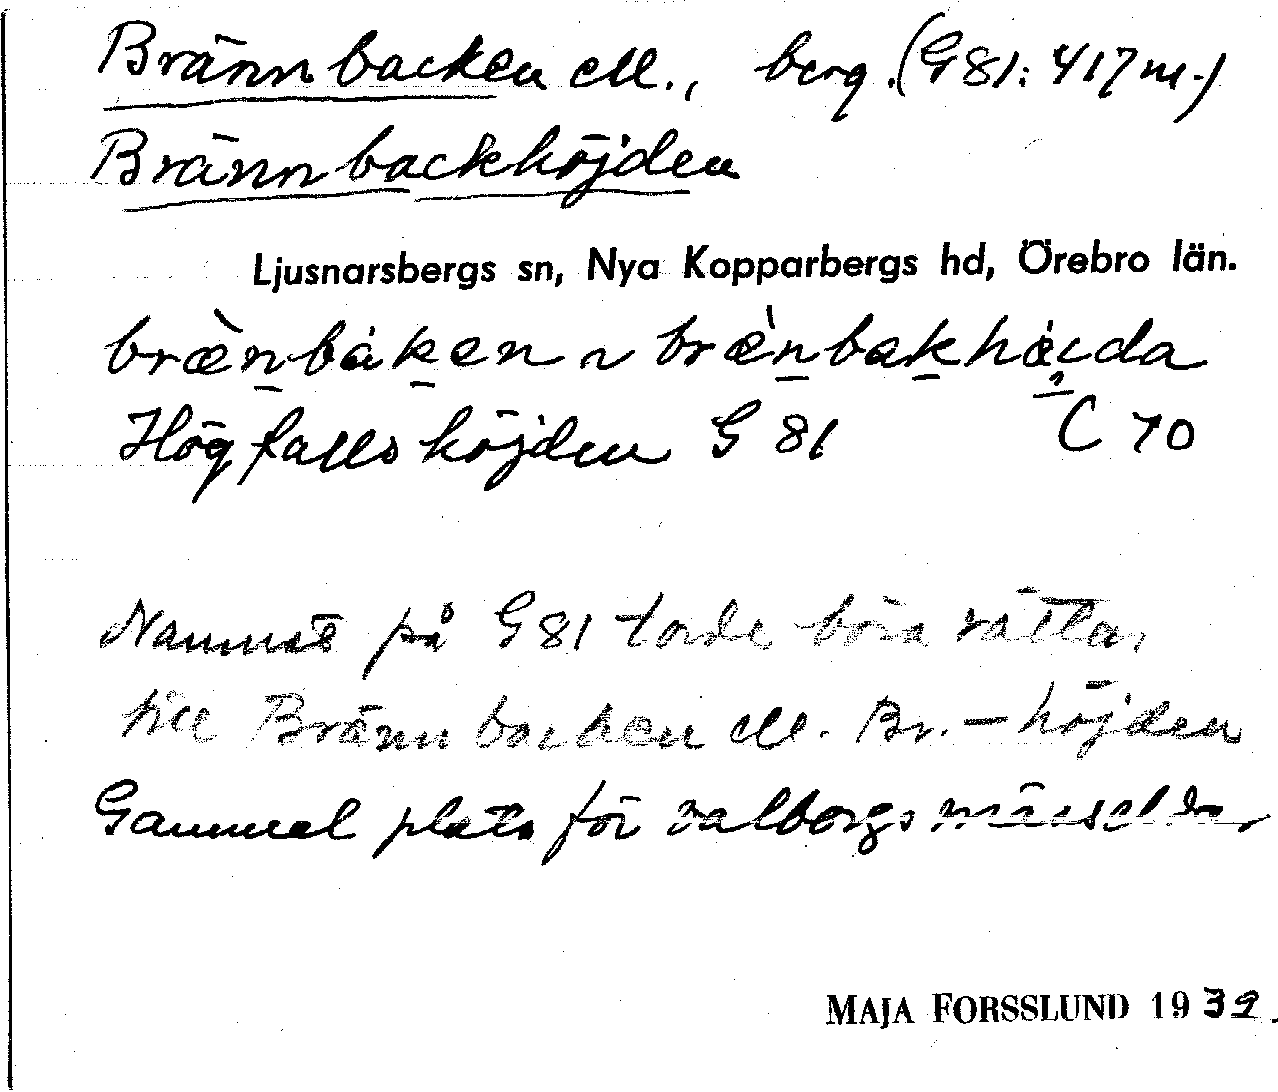 Brännbacken ell., berg. (G81: 417 m.)
Brännbackhöjden
Ljusnarsbergs sn, Nya Kopparbergs hd, Örebro län.
bræ̀n̲bák̲en ~ bræ̀n̲bak̲
Högfallshöjden G 81 C 70
Namnet på G 81 torde böra rättas
till Brännbacken ell. Br.-höjden
Gammal plats för valborgsmässeldar
MAJA FORSSLUND 1939.